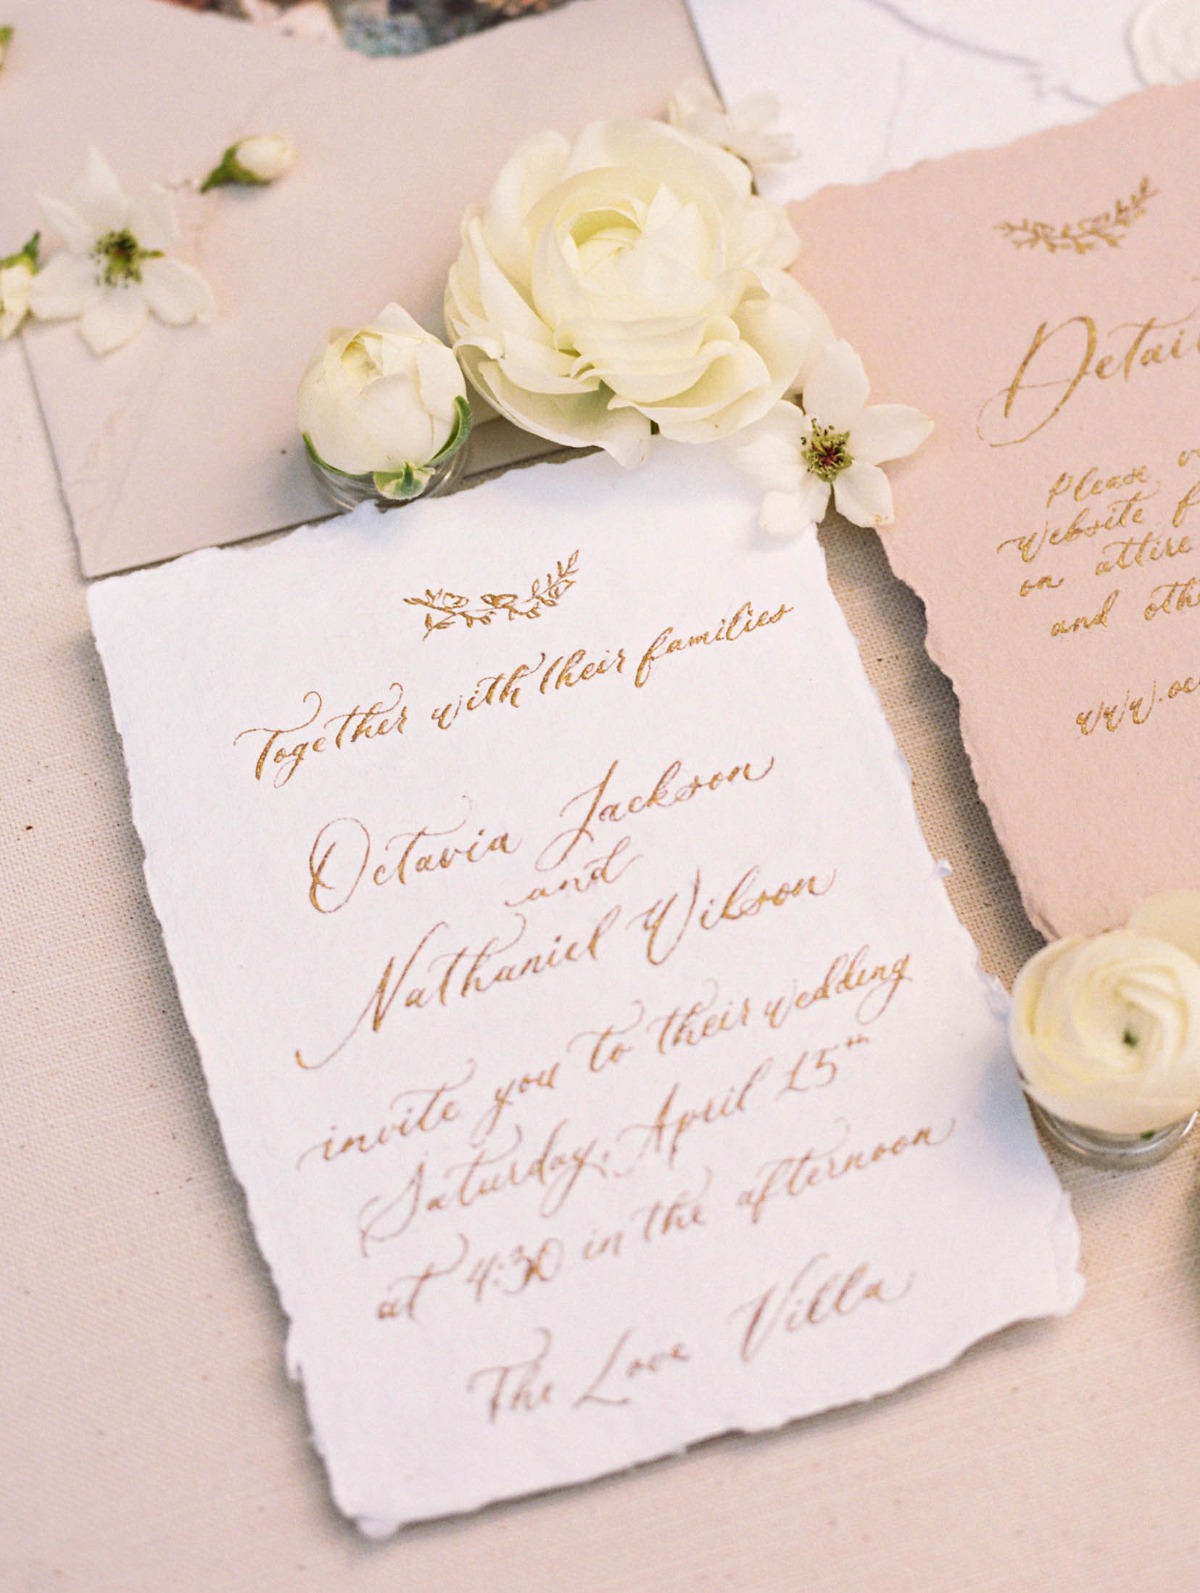 Together with their families
Octavia Jackson
and
Nathaniel Wilson
invite you to their wedding
Saturday, April 15th
at 4:30 in the afternoon
The Love Villa
Detail
Please
website
on attire
and oth
www.oc